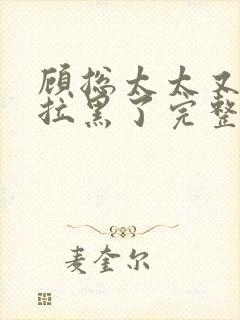 顾总太太又
拉黑了完整
麦奎尔